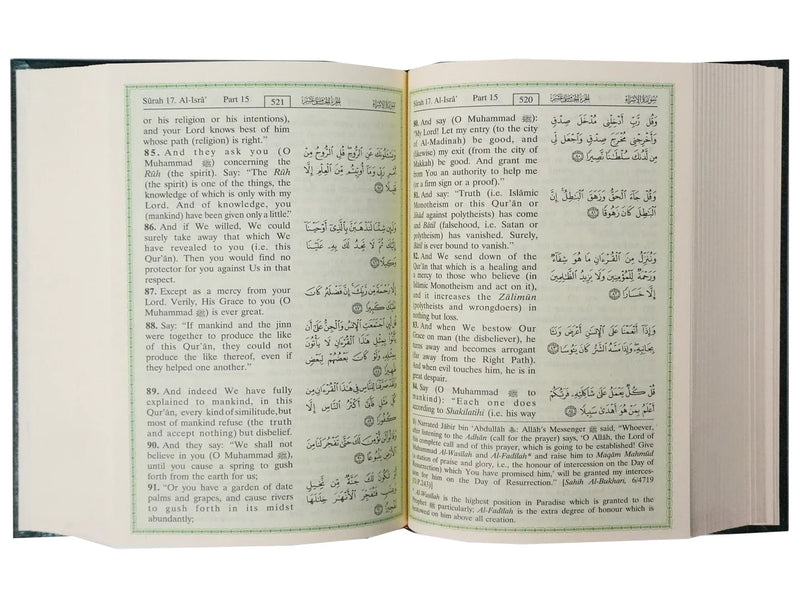 Sûrah 17. Al-Isrâ’ Part 15 520 الجزء الخامس عشر سورة الإسراء
80. And say (O Muhammad ﷺ):
“My Lord! Let my entry (to the city
of Al-Madinah) be good, and
(likewise) my exit (from the city of
Makkah) be good. And grant me
from You an authority to help me
(or a firm sign or a proof).”
81. And say: “Truth (i.e. Islâmic
Monotheism or this Qur’ân or
Jihâd against polytheists) has come
and Bâtil (falsehood, i.e. Satan or
polytheism) has vanished. Surely,
Bâtil is ever bound to vanish.”
82. And We send down of the
Qur’ân that which is a healing and
a mercy to those who believe (in
Islâmic Monotheism and act on it),
and it increases the Zâlimûn
(polytheists and wrongdoers) in
nothing but loss.
83. And when We bestow Our
Grace on man (the disbeliever), he
turns away and becomes arrogant
(far away from the Right Path).
And when evil touches him, he is in
great despair.
84. Say (O Muhammad ﷺ to
mankind): “Each one does
according to Shakilatihi (i.e. his way
وَقُل رَّبِّ أَدْخِلْنِى مُدْخَلَ صِدْقٍ
وَأَخْرِجْنِى مُخْرَجَ صِدْقٍ وَٱجْعَل لِّى
مِن لَّدُنكَ سُلْطَٰنًا نَّصِيرًا ٨٠
وَقُلْ جَآءَ ٱلْحَقُّ وَزَهَقَ ٱلْبَٰطِلُ إِنَّ
ٱلْبَٰطِلَ كَانَ زَهُوقًا ٨١
وَنُنَزِّلُ مِنَ ٱلْقُرْءَانِ مَا هُوَ شِفَآءٌ
وَرَحْمَةٌ لِّلْمُؤْمِنِينَ وَلَا يَزِيدُ ٱلظَّٰلِمِينَ
إِلَّا خَسَارًا ٨٢
وَإِذَآ أَنْعَمْنَا عَلَى ٱلْإِنسَٰنِ أَعْرَضَ وَنَـَٔا
بِجَانِبِهِۦ وَإِذَا مَسَّهُ ٱلشَّرُّ كَانَ يَـُٔوسًا ٨٣
قُلْ كُلٌّ يَعْمَلُ عَلَىٰ شَاكِلَتِهِۦ فَرَبُّكُمْ
أَعْلَمُ بِمَنْ هُوَ أَهْدَىٰ سَبِيلًا ٨٤
Narrated Jâbir bin ‘Abdullâh: Allâh’s Messenger ﷺ said, “Whoever,
after listening to the Adhân (call for the prayer) says, ‘O Allâh, the Lord of
this complete call and of this prayer, which is going to be established! Give
Muhammad Al-Wasîlah and Al-Fadîlah* and raise him to Maqâm Mahmûd
a station of praise and glory, i.e., the honour of intercession on the Day of
Resurrection) which You have promised him,’ will be granted my interces-
sion for him on the Day of Resurrection.” [Sahih Al-Bukhari, 6/4719
Al-Wasîlah is the highest position in Paradise which is granted to the
Prophet ﷺ particularly; Al-Fadîlah is the extra degree of honour which is
bestowed on him above all creation.
Sûrah 17. Al-Isrâ’ Part 15 521 الجزء الخامس عشر سورة الإسراء
or his religion or his intentions),
and your Lord knows best of him
whose path (religion) is right.”
85. And they ask you (O
Muhammad ﷺ) concerning the
Rûh (the spirit). Say: “The Rûh
(the spirit) is one of the things, the
knowledge of which is only with my
Lord. And of knowledge, you
(mankind) have been given only a little.”
86. And if We willed, We could
surely take away that which We
have revealed to you (i.e. this
Qur’ân). Then you would find no
protector for you against Us in that
respect.
87. Except as a mercy from your
Lord. Verily, His Grace to you (O
Muhammad ﷺ) is ever great.
88. Say: “If mankind and the jinn
were together to produce the like
of this Qur’ân, they could not
produce the like thereof, even if
they helped one another.”
89. And indeed We have fully
explained to mankind, in this
Qur’ân, every kind of similitude, but
most of mankind refuse (the truth
and accept nothing) but disbelief.
90. And they say: “We shall not
believe in you (O Muhammad ﷺ),
until you cause a spring to gush
forth from the earth for us;
91. “Or you have a garden of date
palms and grapes, and cause rivers
to gush forth in its midst
abundantly;
وَيَسْـَٔلُونَكَ عَنِ ٱلرُّوحِ قُلِ ٱلرُّوحُ مِنْ
أَمْرِ رَبِّى وَمَآ أُوتِيتُم مِّنَ ٱلْعِلْمِ إِلَّا
قَلِيلًا ٨٥
وَلَئِن شِئْنَا لَنَذْهَبَنَّ بِٱلَّذِىٓ أَوْحَيْنَآ
إِلَيْكَ ثُمَّ لَا تَجِدُ لَكَ بِهِۦ عَلَيْنَا
وَكِيلًا ٨٦
إِلَّا رَحْمَةً مِّن رَّبِّكَ إِنَّ فَضْلَهُۥ كَانَ
عَلَيْكَ كَبِيرًا ٨٧
قُل لَّئِنِ ٱجْتَمَعَتِ ٱلْإِنسُ وَٱلْجِنُّ عَلَىٰٓ أَن
يَأْتُوا۟ بِمِثْلِ هَٰذَا ٱلْقُرْءَانِ لَا يَأْتُونَ
بِمِثْلِهِۦ وَلَوْ كَانَ بَعْضُهُمْ لِبَعْضٍ
ظَهِيرًا ٨٨
وَلَقَدْ صَرَّفْنَا لِلنَّاسِ فِى هَٰذَا ٱلْقُرْءَانِ مِن
كُلِّ مَثَلٍ فَأَبَىٰٓ أَكْثَرُ ٱلنَّاسِ إِلَّا
كُفُورًا ٨٩
وَقَالُوا۟ لَن نُّؤْمِنَ لَكَ حَتَّىٰ تَفْجُرَ لَنَا مِنَ
ٱلْأَرْضِ يَنۢبُوعًا ٩٠
أَوْ تَكُونَ لَكَ جَنَّةٌ مِّن نَّخِيلٍ
وَعِنَبٍ فَتُفَجِّرَ ٱلْأَنْهَٰرَ خِلَٰلَهَا
تَفْجِيرًا ٩١